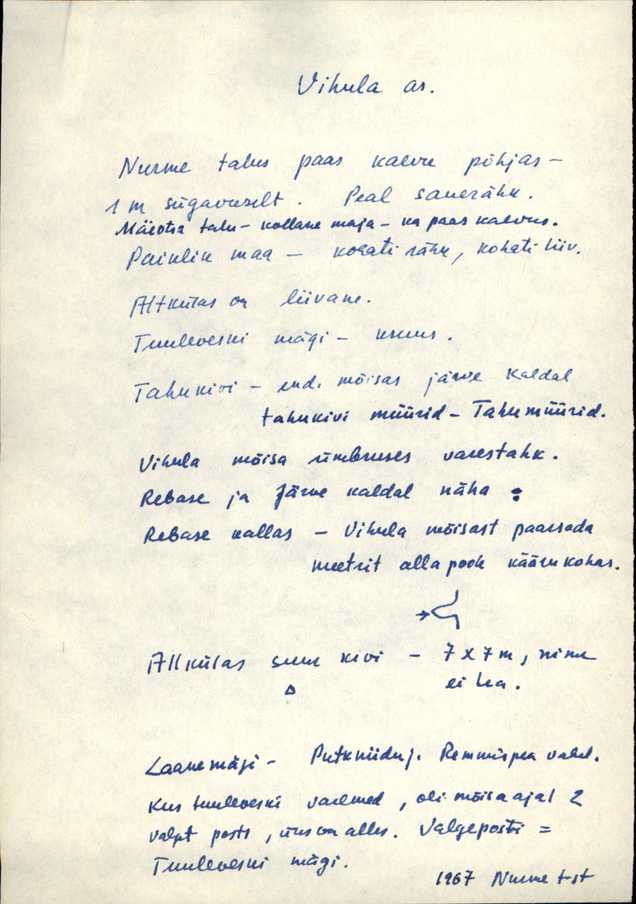 Vihula as.
Nurme talus paas kaevu põhjas –
1 m sügavuselt. Peal sauerähk.
Mäeotsa talu – kollane maja – ka paas kaevus.
Painlik maa – kohati rähk, kohati liiv.
Altkülas on liivane.
Tuuleveski mägi – kruus.
Tahukivi – end. mõisas järve kaldal
tahukivi müürid – Tahumüürid.
Vihula mõisa ümbruses varestahk.
Rebase ja Järve kaldal näha :
Rebase kallas – Vihula mõisast paarsada
meetrit alla poole käärukohas.
Allkülas suur kivi – 7 x 7 m, nime
ei tea.
Laanemägi – Remmispea vahel.
Kus tuuleveski varemed, oli mõisa ajal 2
valget posti, üks on alles. Valgeposti =
Tuuleveski mägi.
1967 Nurme t-st